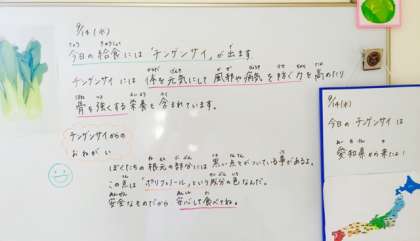 9/14(水)
今日の給食には「チンゲンサイ」が出ます
チンゲンサイには体を元気にして風邪や病気を防ぐ力を高めたり
骨を強くする栄養も含まれています。
チンゲンサイからの
おねがい
ぼくたちの根元の部分には黒い点々がついている事があるよ。
この点は「ポリフェノール」という成分の色なんだ。
安全なものだから安心して食べてね。
9/14(水)
今日のチンゲンサイは
愛知県から来たよ!